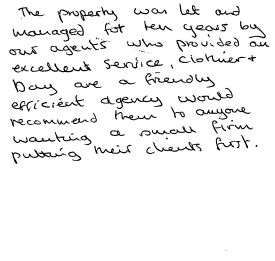 The property was let and
managed for ten years by
our agents who provided an
excellent service, Clothier +
Day are a friendly
efficient agency would
recommend them to anyone
wanting a small firm
putting their clients first.